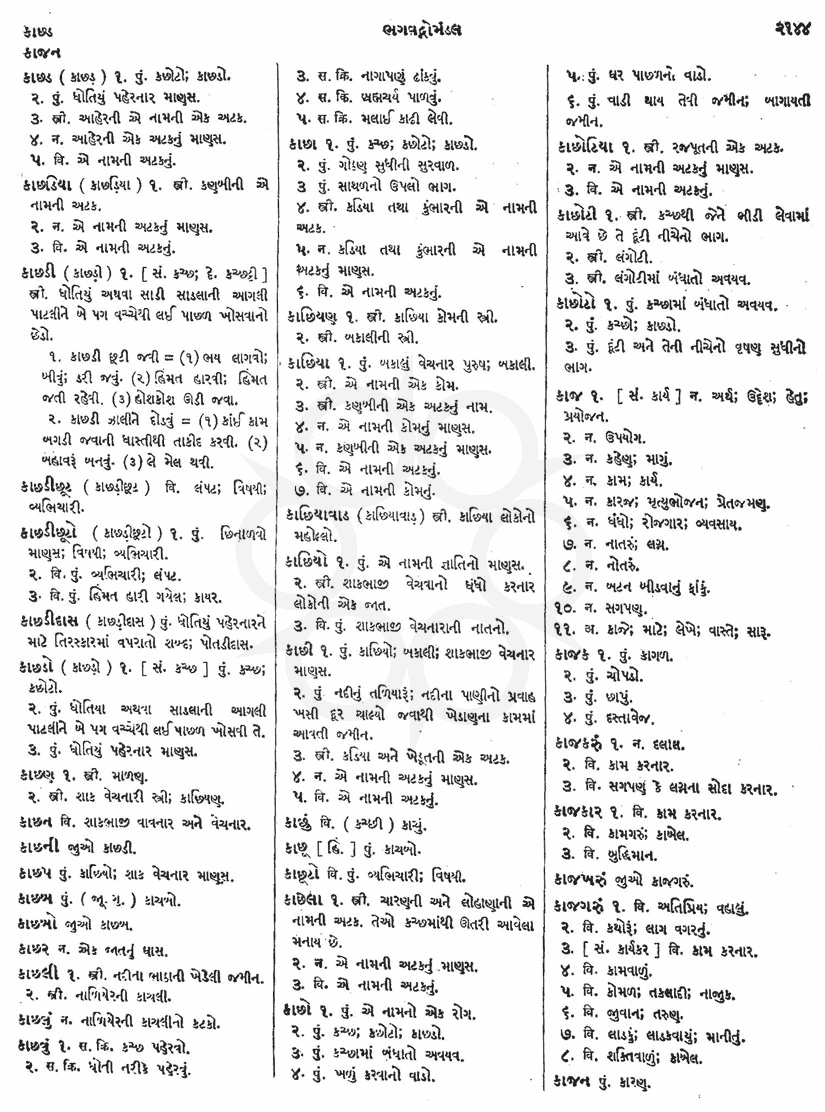 કાછડ
ભગવદ્ગોમંડલ
૨૧૪૪
કાજન
કાછડ ( કાછડ઼ ) ૧. પું. કછોટો; કાછડો.
૨. પું. ધોતિયું પહેરનાર માણુસ.
૩. સ્ત્રી. આહેરની એ નામની એક અટક.
૪. ન. આહેરની એક અટકનું માણુસ.
૫. વિ. એ નામની અટકનું.
કાછડિયા ( કાછડ઼િયા ) ૧. સ્ત્રી. કણુબીની એ
નામની અટક.
૨. ન. એ નામની અટકનું માણુસ.
૩. વિ. એ નામની અટકનું.
કાછડી ( કાછડ઼ી ) ૧. [ સં. કચ્છ; દે. કચ્છટ્ટી ]
સ્ત્રી. ધોતિયું અથવા સાડી સાડલાની આગલી
પાટલીને બે પગ વચ્ચેથી લઈ પાછળ ખોસવાનો
છેડો.
૧. કાછડી છૂટી જવી = (૧) ભય લાગવો;
બીવું; ડરી જવું. (૨) હિંમત હારવી; હિંમત
જતી રહેવી. (૩) હોશકોશ ઊડી જવા.
૨. કાછડી ઝાલીને દોડવું = (૧) કાંઈ કામ
બગડી જવાની ધાસ્તીથી તાકીદ કરવી. (૨)
બહાવરૂં બનવું. (૩) લે મેલ થવી.
કાછડીછૂટ ( કાછડ઼ીછૂટ ) વિ. લંપટ; વિષયી;
વ્યભિચારી.
કાછડીછૂટો ( કાછડ઼ીછૂટો ) ૧. પું. છિનાળવો
માણુસ; વિષયી; વ્યભિચારી.
૨. વિ. પું. વ્યભિચારી; લંપટ.
૩. વિ. પું. હિંમત હારી ગયેલ; કાયર.
કાછડીદાસ ( કાછડ઼ીદાસ ) પું. ધોતિયું પહેરનારને
માટે તિરસ્કારમાં વપરાતો શબ્દ; પોતડીદાસ.
કાછડો ( કાછડ઼ો ) ૧. [ સં. કચ્છ ] પું. કચ્છ;
કછોટો.
૨. પું. ધોતિયા અથવા સાડલાની આગલી
પાટલીને બે પગ વચ્ચેથી લઈ પાછળ ખોસવી તે.
૩. પું. ધોતિયું પહેરનાર માણુસ.
કાછણ ૧. સ્ત્રી. માળણુ.
૨. સ્ત્રી. શાક વેચનારી સ્ત્રી; કાછિયણુ.
કાછન વિ. શાકભાજી વાવનાર અને વેચનાર.
કાછની જુઓ કાછડી.
કાછપ પું. કાછિયો; શાક વેચનાર માણુસ.
કાછબ પું. ( જૂ. ગુ. ) કાચબો.
કાછબો જુઓ કાછબ.
કાછર ન. એક જાતનું ઘાસ.
કાછલી ૧. સ્ત્રી. નદીના ભાઠાની ખેડેલી જમીન.
૨. સ્ત્રી. નાળિયેરની કાચલી.
કાછલું ન. નાળિયેરની કાચલીનો કટકો.
કાછવું ૧. સ. ક્રિ. કચ્છ પહેરવો.
૨. સ. ક્રિ. ધોતી તરીકે પહેરવું.
૩. સ. ક્રિ. નાગાપણું ઢાંકવું.
૪. સ. ક્રિ. બ્રહ્મચર્ય પાળવું.
૫. સ. ક્રિ. મલાઈ કાઢી લેવી.
કાછા ૧. પું. કચ્છ; કછોટો; કાછડો.
૨. પું. ગોઠણુ સુધીની સુરવાળ.
૩ પું. સાથળનો ઉપલો ભાગ.
૪. સ્ત્રી. કડિયા તથા કુંભારની એ નામની
અટક.
૫. ન. કડિયા તથા કુંભારની એ નામની
અટકનું માણુસ.
૬. વિ. એ નામની અટકનું.
કાછિયણ ૧. સ્ત્રી. કાછિયા કોમની સ્ત્રી.
૨. સ્ત્રી. બકાલીની સ્ત્રી.
કાછિયા ૧. પું. બકાલું વેચનાર પુરુષ; બકાલી.
૨. સ્ત્રી. એ નામની એક કોમ.
૩. સ્ત્રી. કણુબીની એક અટકનું નામ.
૪. ન. એ નામની કોમનું માણુસ.
૫. ન. કણુબીની એક અટકનું માણુસ.
૬. વિ. એ નામની અટકનું.
૭. વિ. એ નામની કોમનું.
કાછિયાવાડ (કાછિયાવાડ઼) સ્ત્રી. કાછિયા લોકોનો
મહોલ્લો.
કાછિયો ૧. પું. એ નામની જ્ઞાતિનો માણુસ.
૨. સ્ત્રી. શાકભાજી વેચવાનો ધંધો કરનાર
લોકોની એક જાત.
૩. વિ. પું. શાકભાજી વેચનારાની નાતનો.
કાછી ૧. પું. કાછિયો; બકાલી; શાકભાજી વેચનાર
માણુસ.
૨. પું. નદીનું તળિયારૂં; નદીના પાણીનો પ્રવાહ
ખસી દૂર ચાલ્યો જવાથી ખેડાણુના કામમાં
આવતી જમીન.
૩. સ્ત્રી. કડિયા અને ખેડૂતની એક અટક.
૪. ન. એ નામની અટકનું માણુસ.
૫. વિ. એ નામની અટકનું.
કાછું વિ. ( કચ્છી ) કાચું.
કાછૂ [ હિં. ] પું. કાચબો.
કાછૂટો વિ. પું. વ્યભિચારી; વિષયી.
કાછેલા ૧. સ્ત્રી. ચારણુની અને લોહાણાની એ
નામની અટક. તેઓ કચ્છમાંથી ઊતરી આવેલા
મનાય છે.
૨. ન. એ નામની અટકનું માણુસ.
૩. વિ. એ નામની અટકનું.
કાછો ૧. પું. એ નામનો એક રોગ.
૨. પું. કચ્છ; કછોટો; કાછડો.
૩. પું. કચ્છામાં બંધાતો અવયવ.
૪. પું. ખળું કરવાનો વાડો.
૫. પું. ઘર પાછળનો વાડો.
૬. પું. વાડી થાય તેવી જમીન; બાગાયતી
જમીન.
કાછોટિયા ૧. સ્ત્રી. રજપૂતની એક અટક.
૨. ન. એ નામની અટકનું માણુસ.
૩. વિ. એ નામની અટકનું.
કાછોટી ૧. સ્ત્રી. કચ્છથી જેને ભીડી લેવામાં
આવે છે તે દૂંટી નીચેનો ભાગ.
૨. સ્ત્રી. લંગોટી.
૩. સ્ત્રી. લંગોટીમાં બંધાતો અવયવ.
કાછોટો ૧. પું. કચ્છામાં બંધાતો અવયવ.
૨. પું. કચ્છો; કાછડો.
૩. પું. દૂંટી અને તેની નીચેનો વૃષણુ સુધીનો
ભાગ.
કાજ ૧. [ સં. કાર્ય ] ન. અર્થ; ઉદ્દેશ; હેતુ;
પ્રયોજન.
૨. ન. ઉપયોગ.
૩. ન. કહેણુ; માગું.
૪. ન. કામ; કાર્ય.
૫. ન. કારજ; મૃત્યુભોજન; પ્રેતજમણુ.
૬. ન. ધંધો; રોજગાર; વ્યવસાય.
૭. ન. નાતરું; લગ્ન.
૮. ન. નોતરું.
૯. ન. બટન બીડવાનું ફાંકું.
૧૦. ન. સગપણુ.
૧૧. અ. કાજે; માટે; લેખે; વાસ્તે; સારૂ.
કાજક ૧. પું. કાગળ.
૨. પું. ચોપડો.
૩. પું. છાપું.
૪. પું. દસ્તાવેજ.
કાજકરું ૧. ન. દલાલ.
૨. વિ. કામ કરનાર.
૩. વિ. સગપણુ કે લગ્નના સોદા કરનાર.
કાજકાર ૧. વિ. કામ કરનાર.
૨. વિ. કામગરું; કાબેલ.
૩. વિ. બુદ્ધિમાન.
કાજખરું જુઓ કાજગરું.
કાજગરું ૧. વિ. અતિપ્રિય; વહાલું.
૨. વિ. કથોરૂં; લાગ વગરનું.
૩. [ સં. કાર્યકર ] વિ. કામ કરનાર.
૪. વિ. કામવાળું.
૫. વિ. કોમળ; તકલાદી; નાજુક.
૬. વિ. જુવાન; તરુણુ.
૭. વિ. લાડકું; લાડકવાયું; માનીતું.
૮. વિ. શક્તિવાળું; કાબેલ.
કાજન પું. કારણુ.